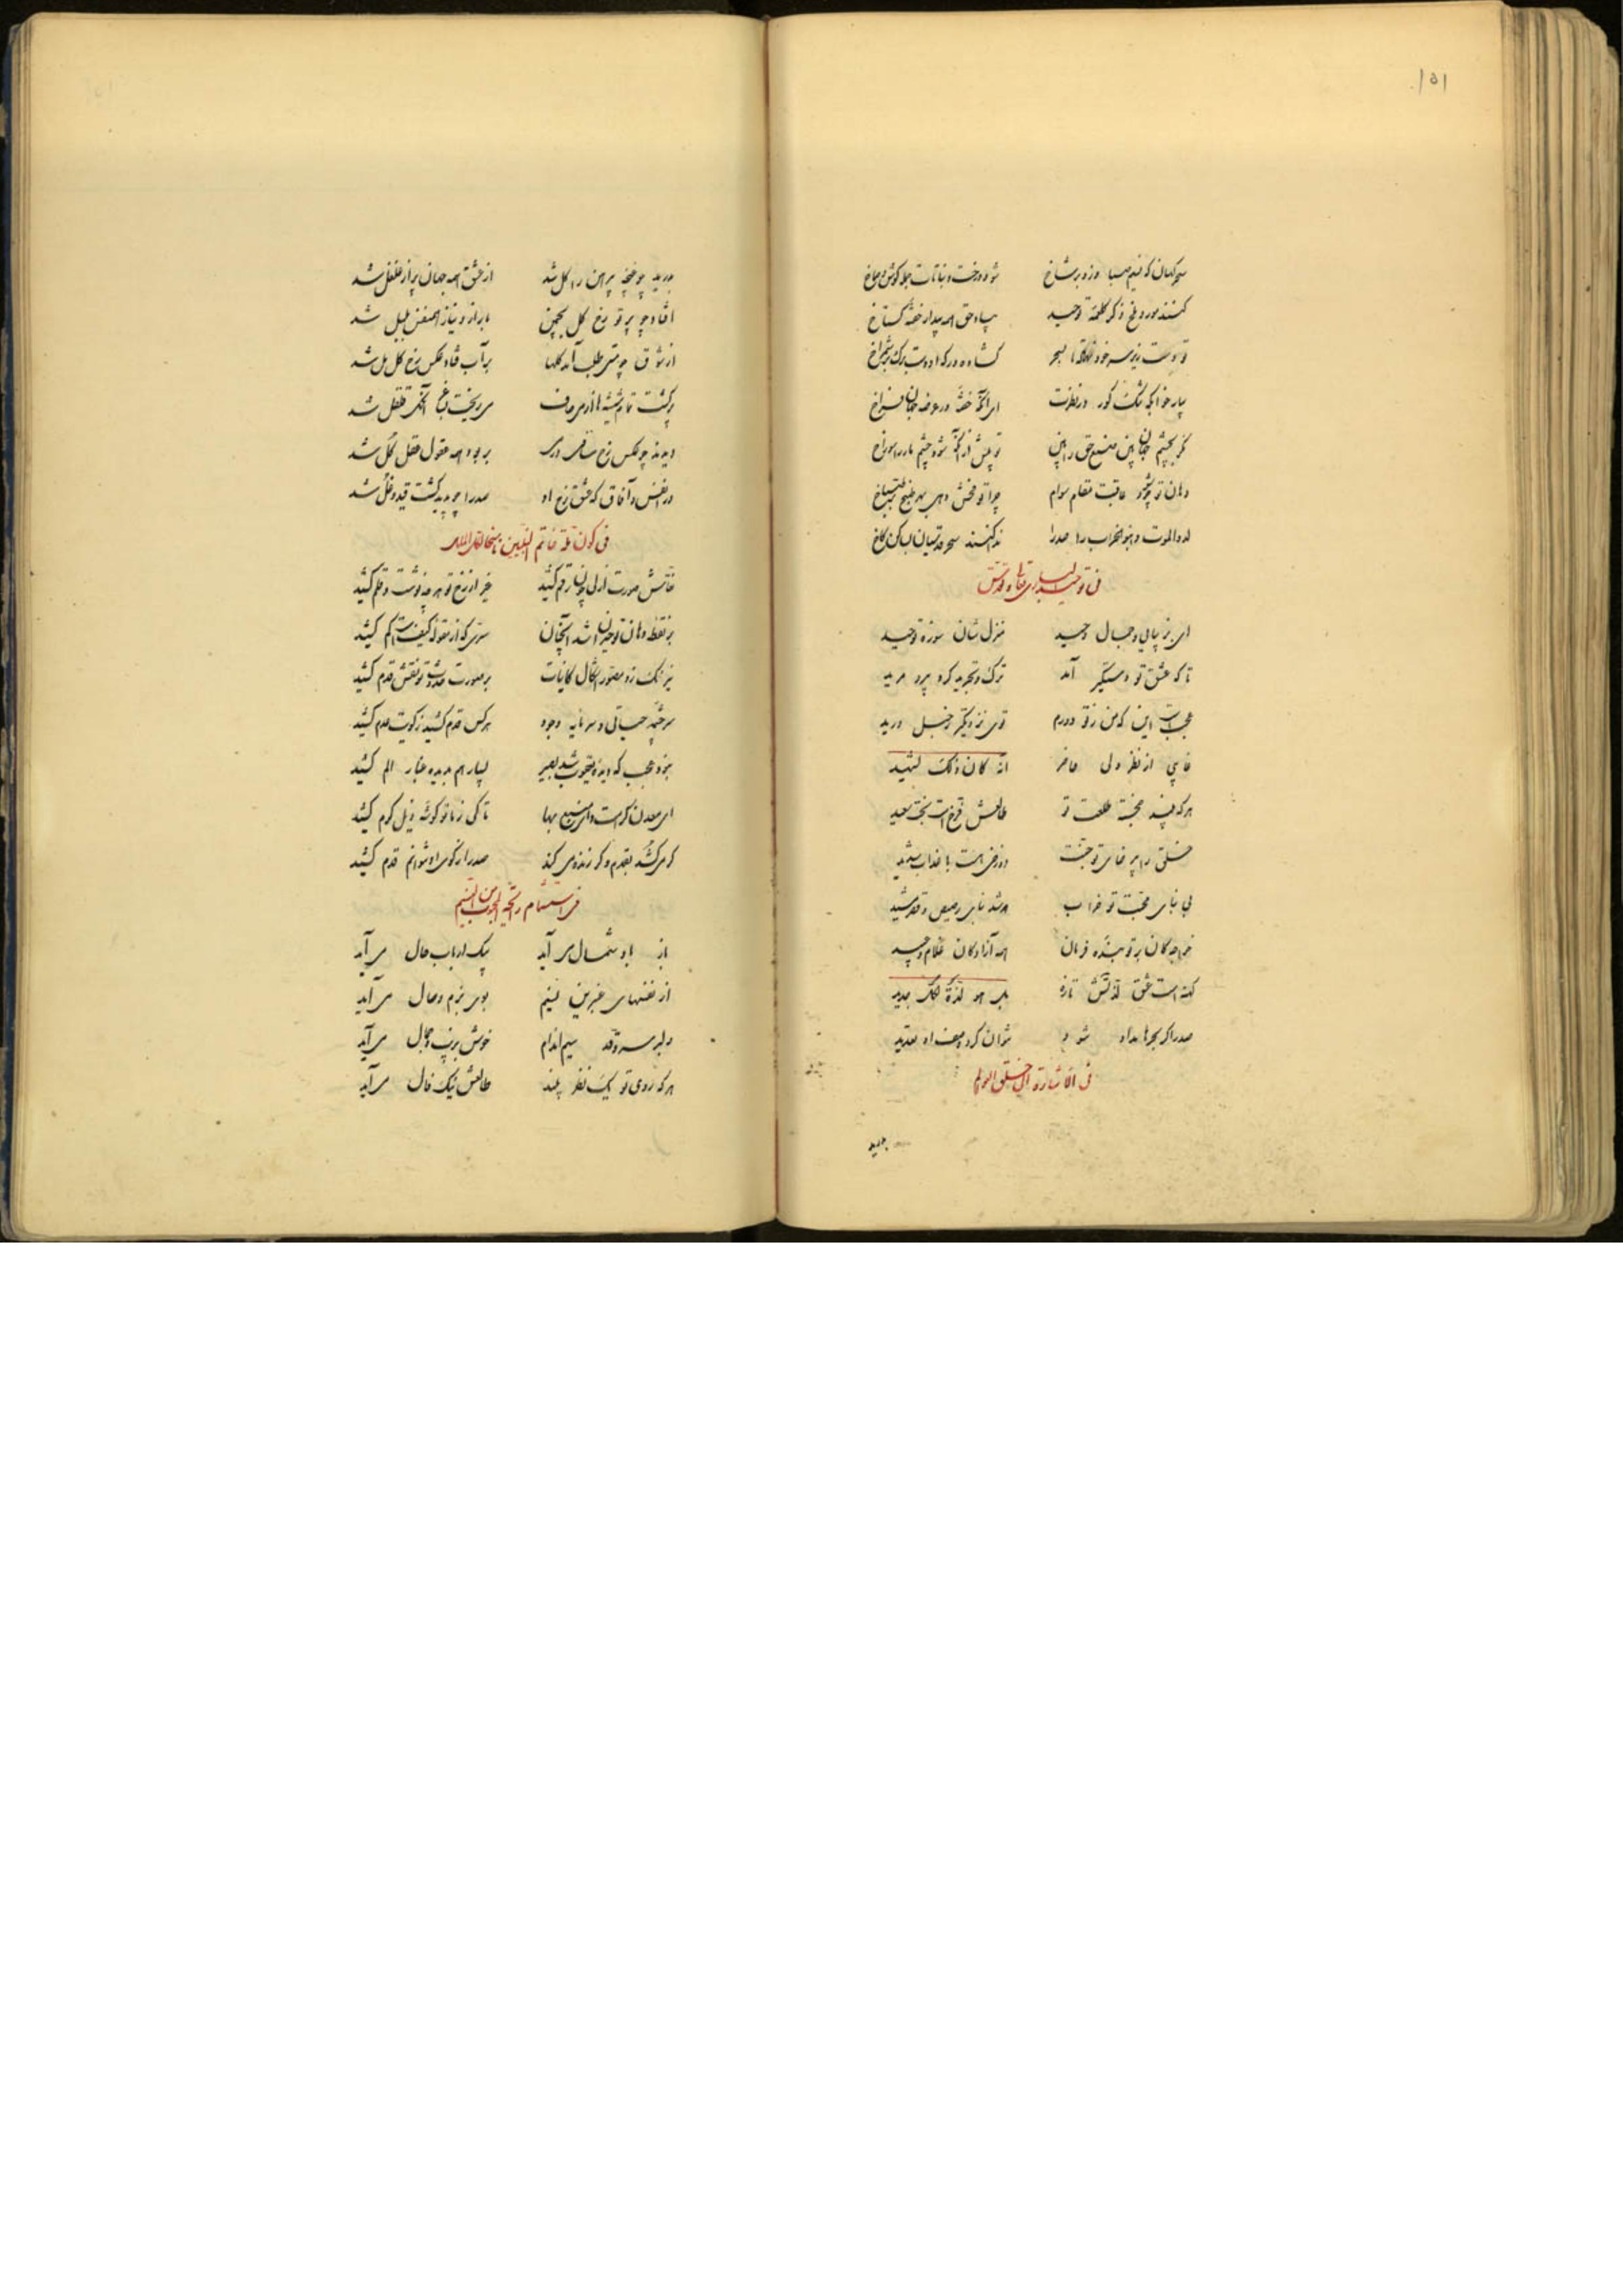 ۱۵۱
سحرگهان که نسیم صبا وزد بر شاخ شود درخت و نباتات جمله گوش و صماخ
کنند مور و ملخ ذکر کلمه توحید سپاه حق همه بیدار خفته گستاخ
تو دست زیر سر خود نهفته تا بسحر گشاده در که او دست برگ بر شاخ
بیار خوابگه تنگ گور در نظرت ای آنکه خفته در عرصه جهان فراخ
نگر بچشم جهان بین صنع حق را بین تو پیش از آنکه شود چشم مار را سوراخ
دهان تو چو شود عاقبت مقام هوام چرا تو فحش دهی بهر طبخ بر طباخ
لدوا للموت وابنوا للخراب را صدرا ندا کنند سحر قدسیان این کاخ
فی توحید الباری تعالی و تقدس
ای بزیبایی و جمال وحید منزل شان سوره توحید
تا که عشق تو دستگیر آمد ترک و تجرید کرد پرد مرید
عجبست این که من ز تو دورم توی نزدیکتر ز حبل ورید
غایبی از نظر ولی حاضر انه کان ذلک لشهید
هر که بیند خجسته طلعت تو طالعش فرخ است بخت سعید
خلق را بی رضای تو جنت دوزخی است با عذاب شدید
بی بنای محبت تو خراب هر شد بنای رصیص و قصر مشید
خواجه کان بر تو بنده فرمان همه آزادگان غلام و عبید
کهنه است عشق لذتش تازه بل هو لذة لک جدید
صدرا گر بحرها مداد شود نتوان کرد وصف او تعدید
فی الاشارة الی خلق العوالم
بدرید
بدرید چو غنچه پیرهن را گل شد از عشق همه جهان پر از غلغل شد
افتاد چو پرتو رخ گل بچمن با راز و نیاز همنفس بلبل شد
از شوق چو مستی طلب آمد گلها بر آب فتاد عکس رخ گل مل شد
پر گشت تمام شیشه ها از می صاف می ریخت بباغ آنگه قلقل شد
دیدند چو عکس رخ ساقی در می بربود همه عقول عقل کل شد
در انفس و آفاق که عشق رخ او صدرا چو بدید گشت قید و غل شد
فی کون خاتم النبیین
نقاش صورت ازلی چون رقم کشید غیر از رخ تو هر چه نوشت و قلم کشید
بر نقطه دهان تو حیران شد آنچنان سری که از مقوله کیفست و کم کشید
نیرنگ زد مصور اشکال کاینات بر صورت حدوث تو نقش قدم کشید
سرچشمه حیاتی و سرمایه وجود هر کس قدم کشید ز کویت عدم کشید
نبود عجب که دیده یعقوب شد بصیر بسیار هم بدیده غبار الم کشید
ای معدن کرامت و ای منبع بها تا کی ز ما تو گوشه ذیل کرم کشید
گر می کشد بقدم و گر زنده می کند صدرا ز کوی او نتوانم قدم کشید
فی استشمام رائحة المحبوب من النسیم
باز باد شمال می آید پیک ارباب حال می آید
از نفسهای عنبرین نسیم بوی بزم وصال می آید
دلبر سرو قد سیم اندام خوش بزیب و جمال می آید
هر که روی تو یک نظر بیند طالعش نیک فال می آید